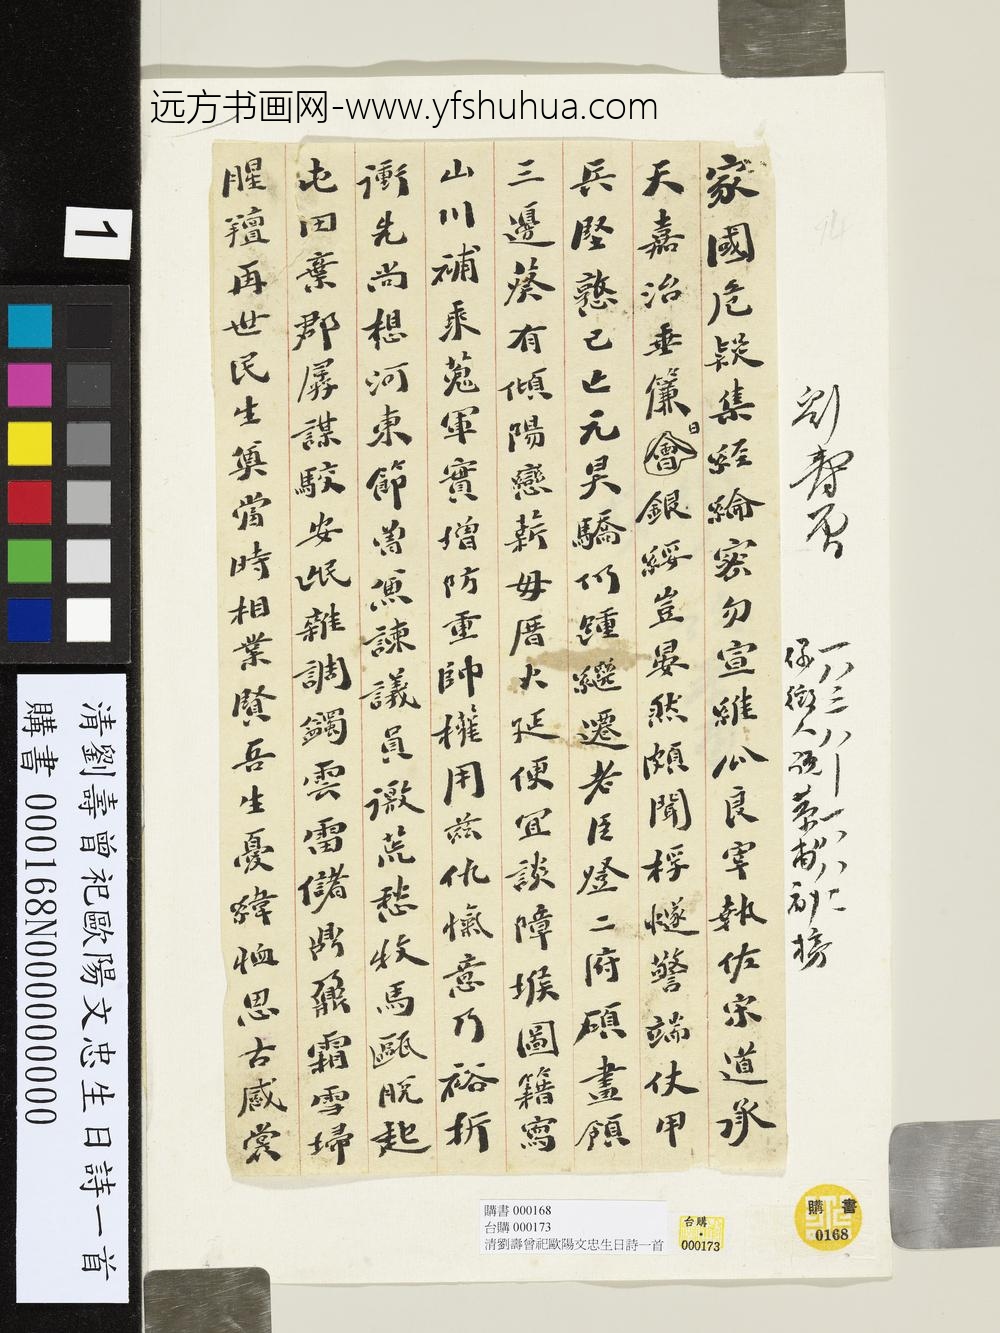 远方书画网-www.yfshuhua.com
劉壽曾
一八三八—一八八二
儀徵人
家國危疑集經綸密勿宣維公良宰執佐宋道承
天嘉治垂簾會銀綬豈晏然頗聞桴燧警端仗甲
日
兵堅憝已亡元昊驕仍踵繼遷老臣燈二府碩畫領
三邊葵有傾陽戀薪毋厝火延便宜談障堠圖籍寫
山川補乘蒐軍實增防重帥權用茲仇愾意乃裕折
衝先尚想河東節曾兼諫議員徼荒愁牧馬甌脫起
屯田棄郡孱謀駮安氓雜調蠲雲雷儲鼎鼐霜雪埽
腥羶再世民生奠當時相業賢吾生憂緯恤思古感裳
1
清劉壽曾祀歐陽文忠生日詩一首
購書 000168N000000000
購書 000168
台購 000173
清劉壽曾祀歐陽文忠生日詩一首
台購
000173
購書
0168